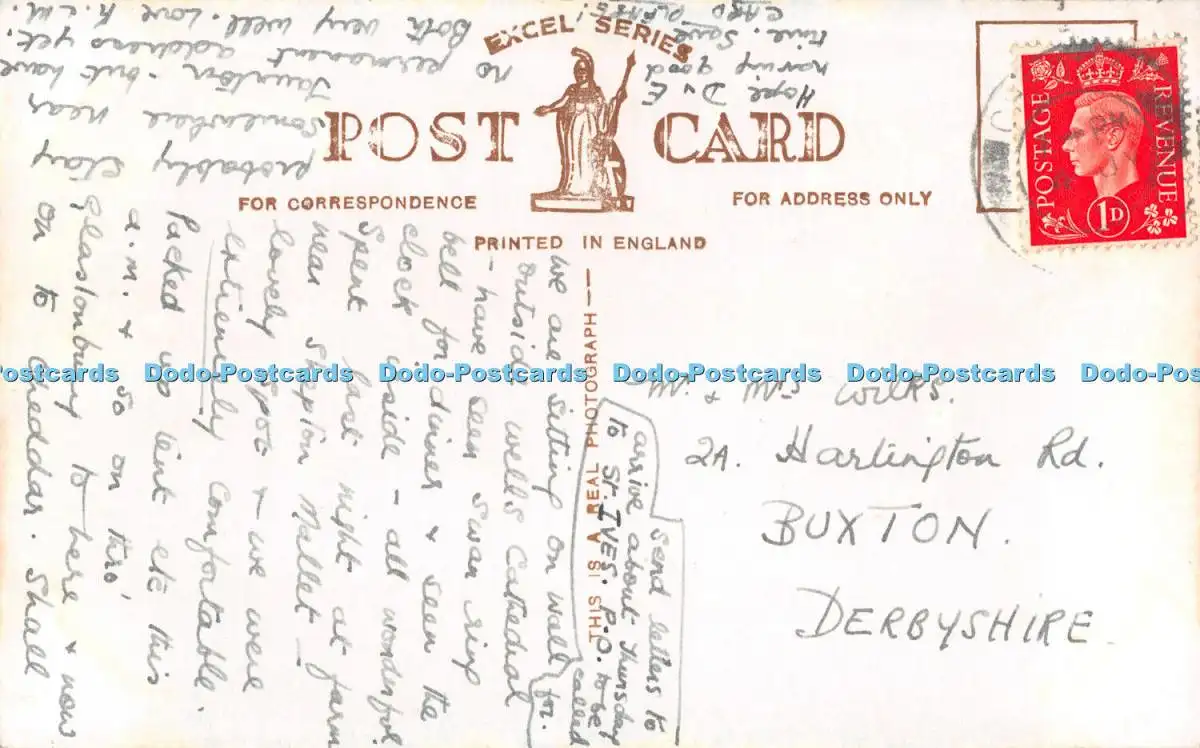 EXCEL SERIES
POST CARD
FOR CORRESPONDENCE
FOR ADDRESS ONLY
PRINTED IN ENGLAND
THIS IS A REAL PHOTOGRAPH
POSTAGE
REVENUE
1D
We are sitting on wall
outside Wells Cathedral
- have seen swan ring
bell for dinner & seen the
clock inside - all wonderful
Spent last night at farm
near Shepton Mallet -
lovely spot & we were
extremely comfortable.
Packed up tent etc this
a.m. & so on thro'
Glastonbury to here & now
on to Cheddar. Shall
stay
probably
somewhere near
Taunton - but have
no permanent address yet.
Both very well. Love K.&M.
Hope D & E
having good
time. Save
CARD PLEASE!
Send letters to
arrive about Thursday
to St. IVES. P.O. to be
called
for.
Mr. & Mrs WILKS.
2A. Harlington Rd.
BUXTON.
DERBYSHIRE
Dodo-Postcards Dodo-Postcards Dodo-Postcards Dodo-Postcards Dodo-Postcards Dodo-Postcards